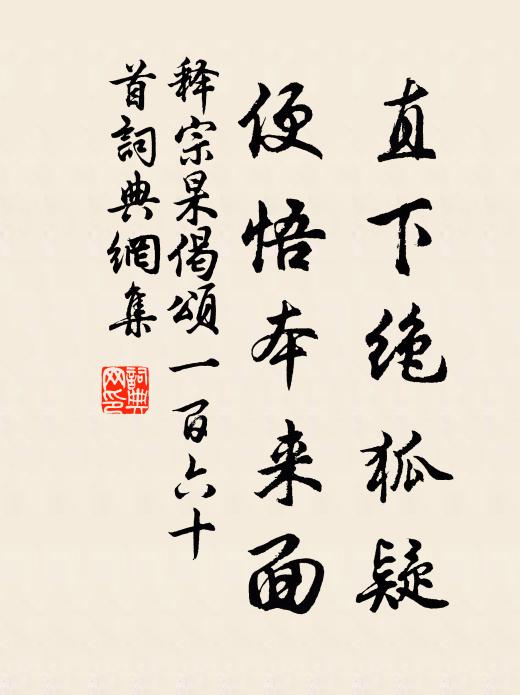 直下绝狐疑
便悟本来面
释宗杲偈頌一百六十
首詞典網集
詞典
网印